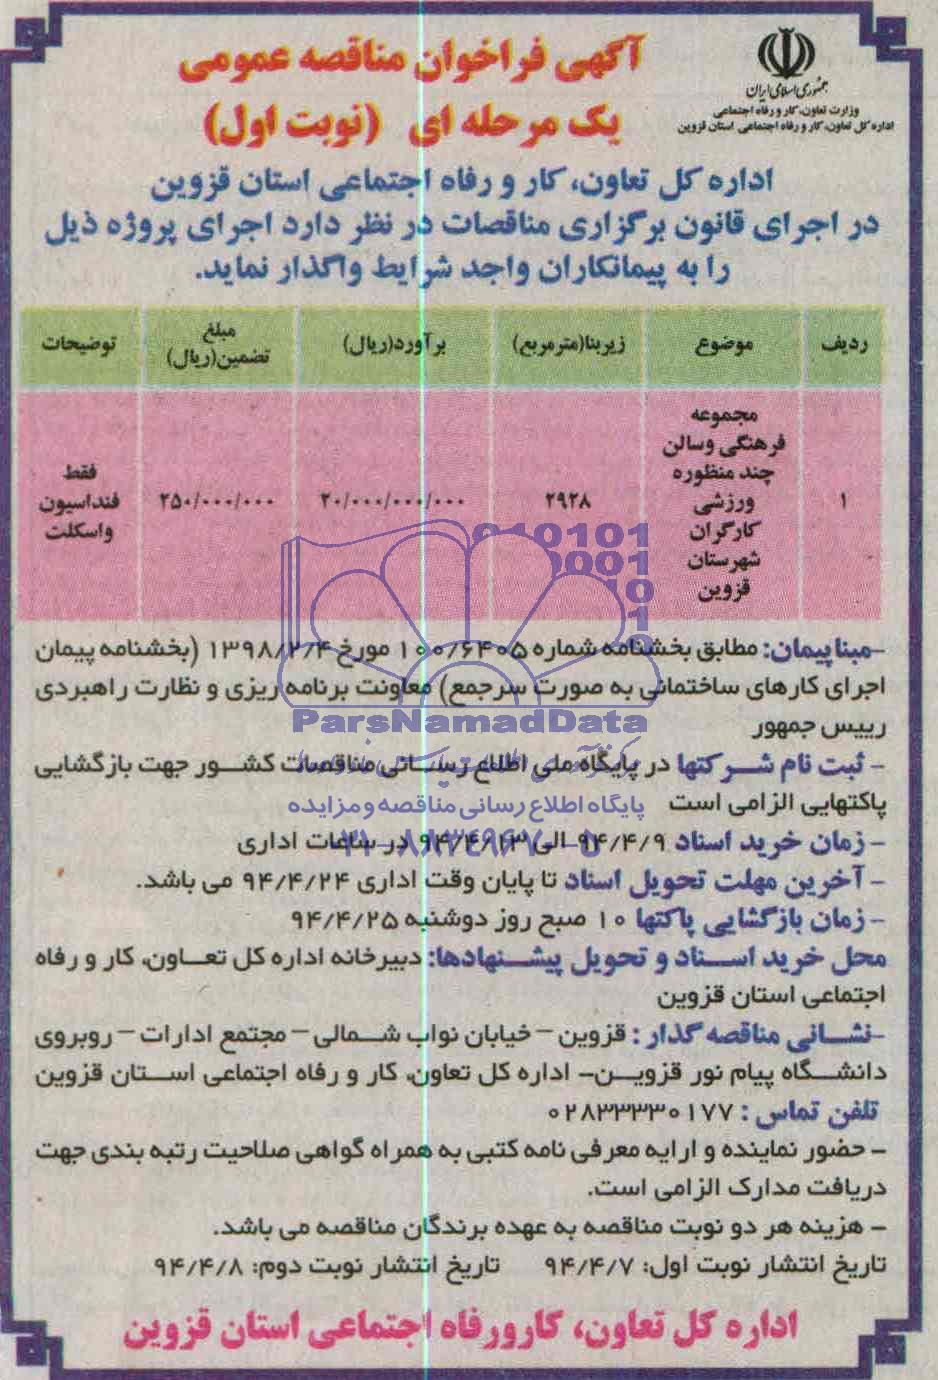 جمهوری اسلامی ایران
وزارت تعاون، کار و رفاه اجتماعی
اداره کل تعاون، کار و رفاه اجتماعی استان قزوین
آگهی فراخوان مناقصه عمومی
یک مرحله ای (نوبت اول)
اداره کل تعاون، کار و رفاه اجتماعی استان قزوین
در اجرای قانون برگزاری مناقصات در نظر دارد اجرای پروژه ذیل
را به پیمانکاران واجد شرایط واگذار نماید.
ردیف موضوع زیربنا(مترمربع) برآورد(ریال) مبلغ تضمین(ریال) توضیحات
۱ مجموعه فرهنگی وسالن چند منظوره ورزشی کارگران شهرستان قزوین ۲۹۲۸ ۲۰/۰۰۰/۰۰۰/۰۰۰ ۲۵۰/۰۰۰/۰۰۰ فقط فنداسیون واسکلت
-مبنا پیمان: مطابق بخشنامه شماره ۱۰۰/۶۴۰۵ مورخ ۱۳۹۸/۲/۴ (بخشنامه پیمان
اجرای کارهای ساختمانی به صورت سرجمع) معاونت برنامه ریزی و نظارت راهبردی
رییس جمهور
ParsNamadData
- ثبت نام شرکتها در پایگاه ملی اطلاع رسانی مناقصات کشور جهت بازگشایی
پاکتهایی الزامی است
پایگاه اطلاع رسانی مناقصه و مزایده
- زمان خرید اسناد ۹۴/۴/۹ الی ۹۴/۴/۱۳ در ساعات اداری
۰۲۱-۸۸۳۴۹۶۷۰-۵
- آخرین مهلت تحویل اسناد تا پایان وقت اداری ۹۴/۴/۲۴ می باشد.
- زمان بازگشایی پاکتها ۱۰ صبح روز دوشنبه ۹۴/۴/۲۵
محل خرید اسناد و تحویل پیشنهادها: دبیرخانه اداره کل تعاون، کار و رفاه
اجتماعی استان قزوین
-نشانی مناقصه گذار : قزوین – خیابان نواب شمالی – مجتمع ادارات – روبروی
دانشگاه پیام نور قزوین- اداره کل تعاون، کار و رفاه اجتماعی استان قزوین
تلفن تماس : ۰۲۸۳۳۳۳۰۱۷۷
- حضور نماینده و ارایه معرفی نامه کتبی به همراه گواهی صلاحیت رتبه بندی جهت
دریافت مدارک الزامی است.
- هزینه هر دو نوبت مناقصه به عهده برندگان مناقصه می باشد.
تاریخ انتشار نوبت اول: ۹۴/۴/۷ تاریخ انتشار نوبت دوم: ۹۴/۴/۸
اداره کل تعاون، کارورفاه اجتماعی استان قزوین